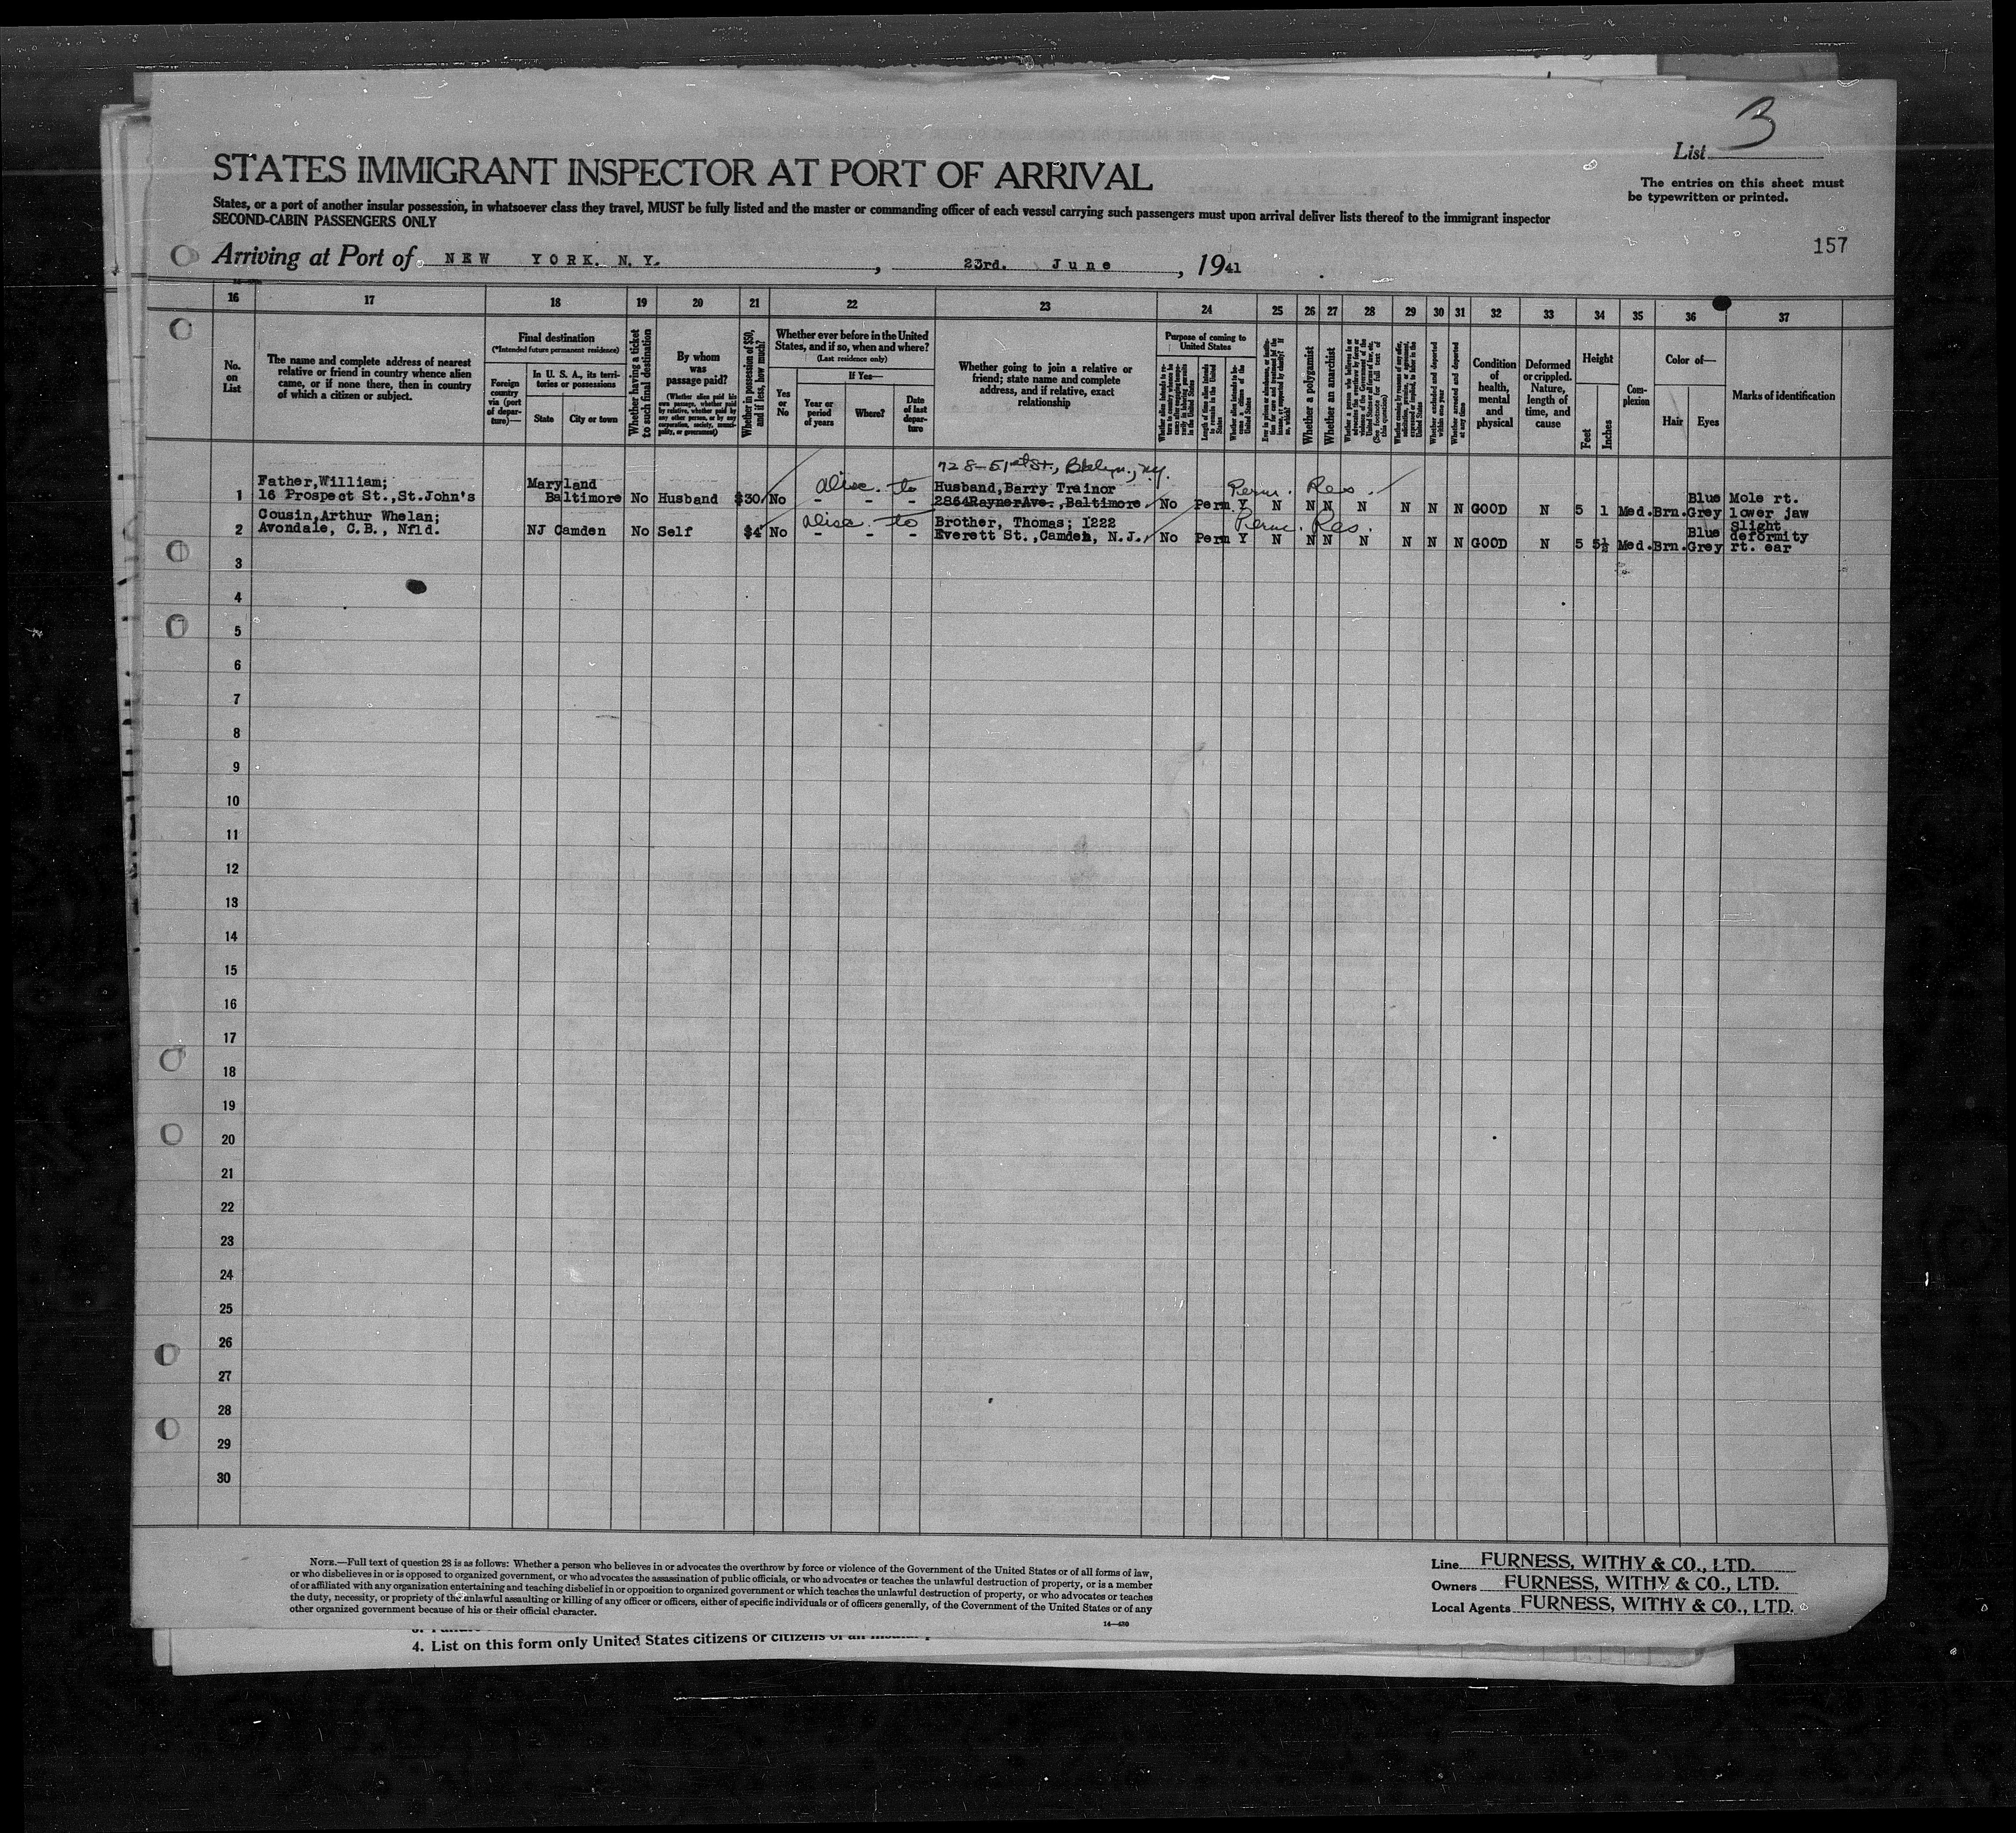 3
List
STATES IMMIGRANT INSPECTOR AT PORT OF ARRIVAL
The entries on this sheet must
be typewritten or printed.
States, or a port of another insular possession, in whatsoever class they travel, MUST be fully listed and the master or commanding officer of each vessel carrying such passengers must upon arrival deliver lists thereof to the immigrant inspector
SECOND-CABIN PASSENGERS ONLY
157
Arriving at Port of NEW YORK. N.Y. , 23rd. June , 1941
16 17 18 19 20 21 22 23 24 25 26 27 28 29 30 31 32 33 34 35 36 37
No.
on
List
The name and complete address of nearest
relative or friend in country whence alien
came, or if none there, then in country
of which a citizen or subject.
Final destination
(*Intended future permanent residence)
Foreign
country
via (port
of depar-
ture)—
In U. S. A., its terri-
tories or possessions
State
City or town
Whether having a ticket
to such final destination
By whom
was
passage paid?
(Whether alien paid his
own passage, whether paid
by relative, whether paid by
any other person, or by any
corporation, society, munici-
pality, or government)
Whether in possession of $50,
and if less, how much?
Whether ever before in the United
States, and if so, when and where?
(Last residence only)
Yes
or
No
If Yes—
Year or
period
of years
Where?
Date
of last
depar-
ture
Whether going to join a relative or
friend; state name and complete
address, and if relative, exact
relationship
Purpose of coming to
United States
Whether a polygamist
Whether an anarchist
Condition
of
health,
mental
and
physical
Deformed
or crippled.
Nature,
length of
time, and
cause
Height
Feet
Inches
Com-
plexion
Color of—
Hair
Eyes
Marks of identification
728-51st St., Bklyn., N.Y.
1 Father,William;
16 Prospect St.,St.John's
Maryland
Baltimore No Husband $30 No - - -
Husband,Barry Trainor
2864RaynerAve.,Baltimore. No Perm Y N N N N N N N GOOD N 5 1 Med. Brn. Blue
Grey
Mole rt.
lower jaw
Perm. Res.
2 Cousin,Arthur Whelan;
Avondale, C.B., Nfld.
NJ Camden No Self $4 No - - -
Brother, Thomas; 1222
Everett St.,Camden, N.J. No Perm Y N N N N N N N GOOD N 5 5½ Med. Brn. Blue
Grey
Slight
deformity
rt. ear
Perm. Res.
3
4
5
6
7
8
9
10
11
12
13
14
15
16
17
18
19
20
21
22
23
24
25
26
27
28
29
30
NOTE.—Full text of question 28 is as follows: Whether a person who believes in or advocates the overthrow by force or violence of the Government of the United States or of all forms of law,
or who disbelieves in or is opposed to organized government, or who advocates the assassination of public officials, or who advocates or teaches the unlawful destruction of property, or is a member
of or affiliated with any organization entertaining and teaching disbelief in or opposition to organized government or which teaches the unlawful destruction of property, or who advocates or teaches
the duty, necessity, or propriety of the unlawful assaulting or killing of any officer or officers, either of specific individuals or of officers generally, of the Government of the United States or of any
other organized government because of his or their official character.
14—430
Line FURNESS, WITHY & CO., LTD.
Owners FURNESS, WITHY & CO., LTD.
Local Agents FURNESS, WITHY & CO., LTD.
4. List on this form only United States citizens or citizens of an